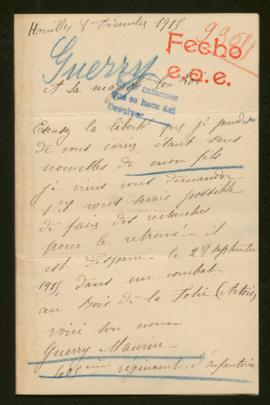 Houilles 8 Décembre 1915
9968
Fecho
e.o.e.
Guerry
A sa majesté le Roi
informes
que se hace así
Devolver
Excusez la liberté que je prends
de vous écrire étant sans
nouvelles de mon fils
je viens vous demander
s'il vous serais possible
de faire des recherches
pour le retrouvé il
est disparu le 28 septembre
1915 dans un combat
au Bois de la Folie (Artois)
voici son nom
Guerry Maurice
régiment d'infanterie